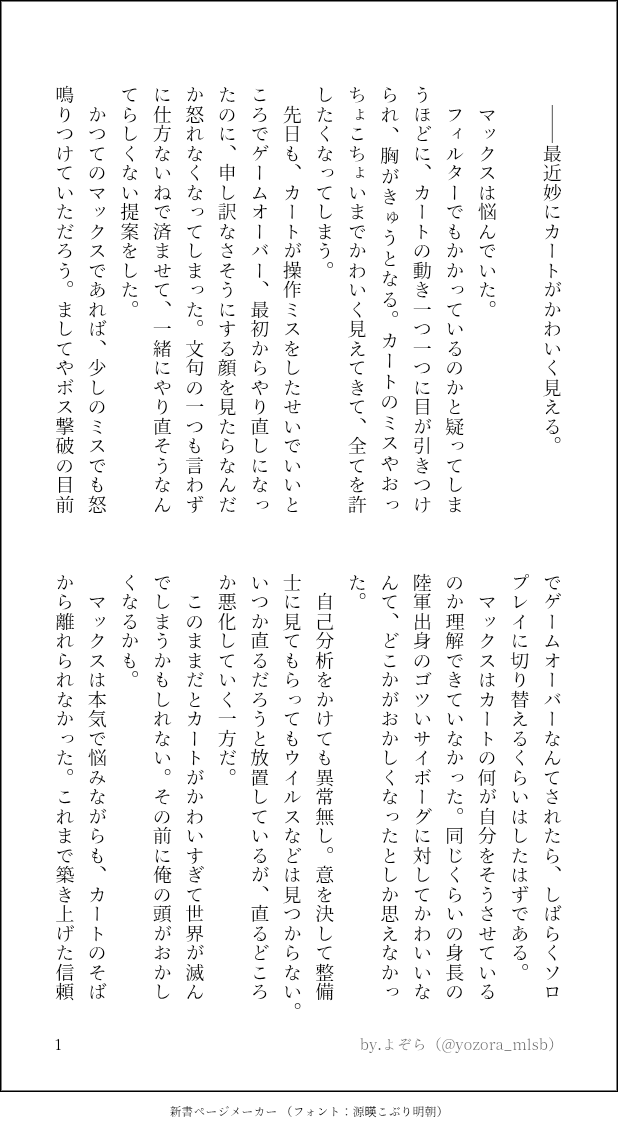 ――最近妙にカートがかわいく見える。
マックスは悩んでいた。
フィルターでもかかっているのかと疑ってしま
うほどに、カートの動き一つ一つに目が引きつけ
られ、胸がきゅうとなる。カートのミスやおっ
ちょこちょいまでかわいく見えてきて、全てを許
したくなってしまう。
先日も、カートが操作ミスをしたせいでいいと
ころでゲームオーバー、最初からやり直しになっ
たのに、申し訳なさそうにする顔を見たらなんだ
か怒れなくなってしまった。文句の一つも言わず
に仕方ないねで済ませて、一緒にやり直そうなん
てらしくない提案をした。
かつてのマックスであれば、少しのミスでも怒
鳴りつけていただろう。ましてやボス撃破の目前
でゲームオーバーなんてされたら、しばらくソロ
プレイに切り替えるくらいはしたはずである。
マックスはカートの何が自分をそうさせている
のか理解できていなかった。同じくらいの身長の
陸軍出身のゴツいサイボーグに対してかわいいな
んて、どこかがおかしくなったとしか思えなかっ
た。
自己分析をかけても異常無し。意を決して整備
士に見てもらってもウイルスなどは見つからない。
いつか直るだろうと放置しているが、直るどころ
か悪化していく一方だ。
このままだとカートがかわいすぎて世界が滅ん
でしまうかもしれない。その前に俺の頭がおかし
くなるかも。
マックスは本気で悩みながらも、カートのそば
から離れられなかった。これまで築き上げた信頼
1
by.よぞら（@yozora_mlsb）
新書ページメーカー（フォント：源暎こぶり明朝）